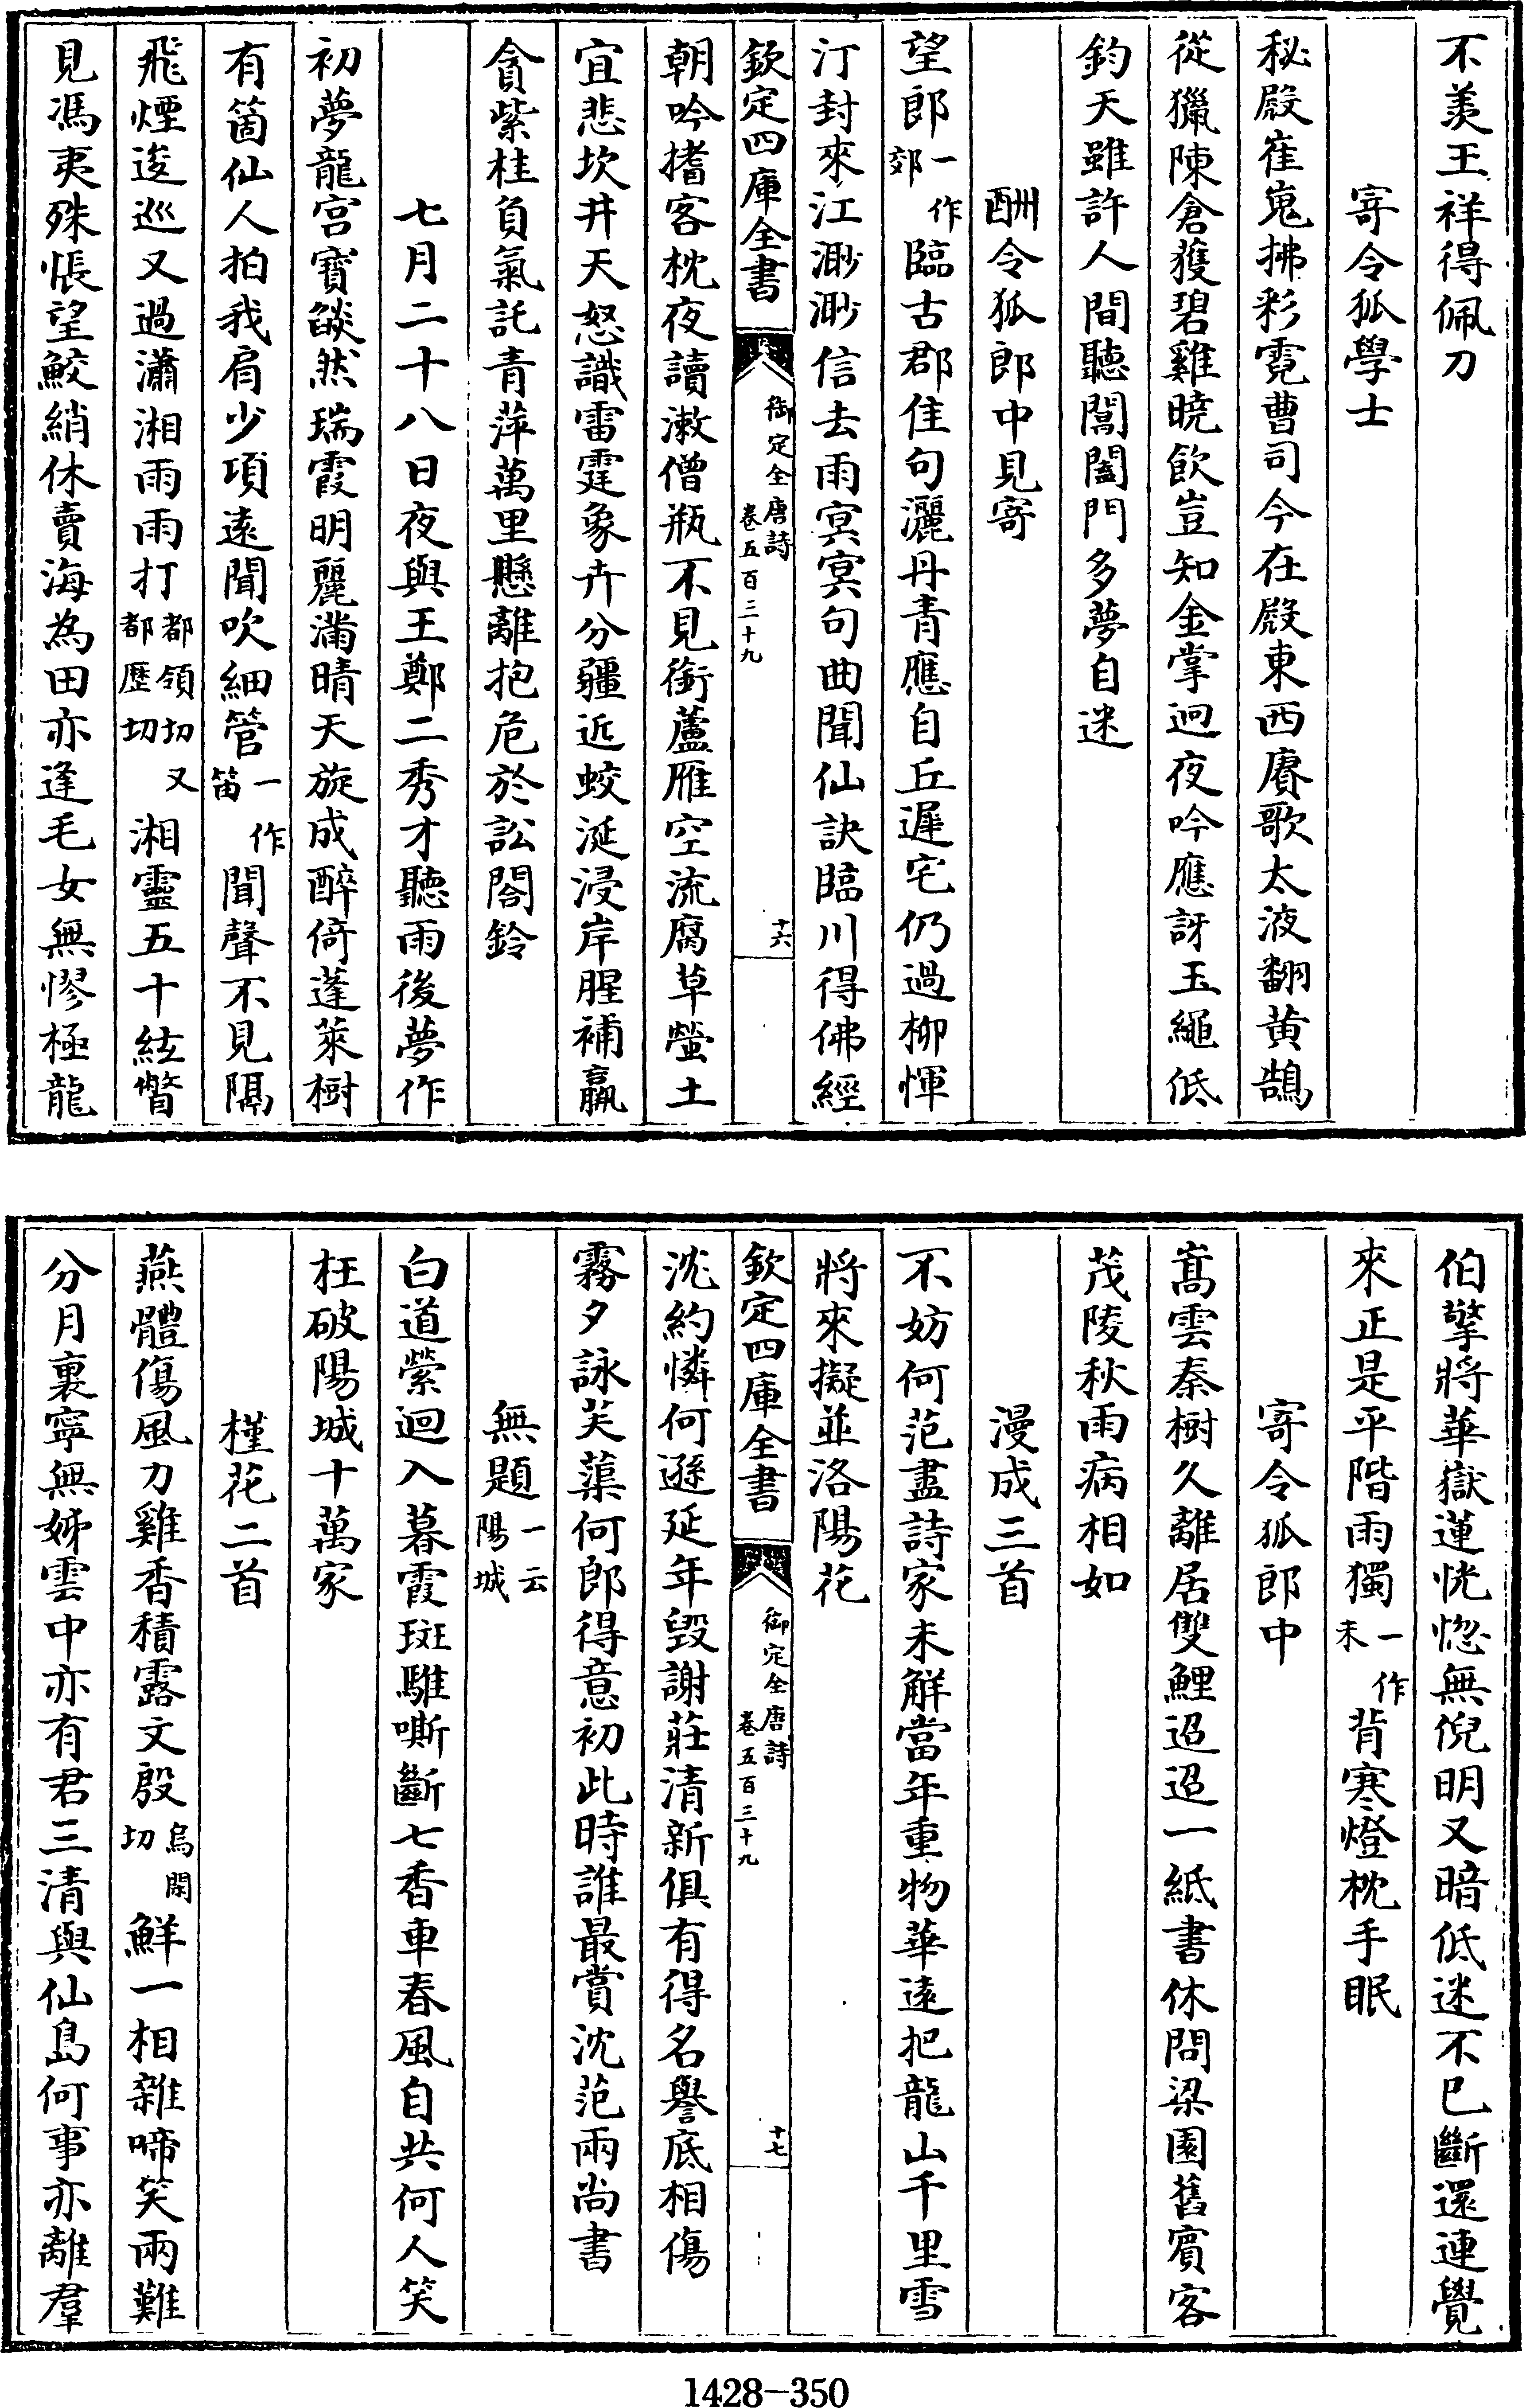 不羨王祥得佩刀
寄令狐學士
秘殿崔嵬拂彩霓曹司今在殿東西賡歌太液翻黃鵠
從獵陳倉獲碧雞曉飲豈知金掌迥夜吟應訝玉繩低
鈞天雖許人間聽閶闔門多夢自迷
酬令狐郎中見寄
望郎一作郊臨古郡佳句灑丹青應自丘遲宅仍過柳惲
汀封來江渺渺信去雨冥冥句曲聞仙訣臨川得佛經
欽定四庫全書 御定全唐詩卷五百三十九 十六
朝吟揩客枕夜讀漱僧瓶不見銜蘆雁空流腐草螢土
宜悲坎井天怒識雷霆象卉分疆近蛟涎浸岸腥補羸
貪紫桂負氣託青萍萬里懸離抱危於訟閤鈴
七月二十八日夜與王鄭二秀才聽雨後夢作
初夢龍宮寶燄然瑞霞明麗滿晴天旋成醉倚蓬萊樹
有箇仙人拍我肩少項遠聞吹細管一作笛聞聲不見隔
飛煙逡巡又過瀟湘雨雨打都領切又都歷切湘靈五十絃瞥
見馮夷殊悵望鮫綃休賣海為田亦逢毛女無憀極龍
伯擎將華嶽蓮恍惚無倪明又暗低迷不已斷還連覺
來正是平階雨獨一作未背寒燈枕手眠
寄令狐郎中
嵩雲秦樹久離居雙鯉迢迢一紙書休問梁園舊賓客
茂陵秋雨病相如
漫成三首
不妨何范盡詩家未解當年重物華遠把龍山千里雪
將來擬並洛陽花
欽定四庫全書 御定全唐詩卷五百三十九 十七
沈約憐何遜延年毀謝莊清新俱有得名譽底相傷
霧夕詠芙蕖何郎得意初此時誰最賞沈范兩尚書
無題一云陽城
白道縈迴入暮霞斑騅嘶斷七香車春風自共何人笑
枉破陽城十萬家
槿花二首
燕體傷風力雞香積露文殷烏閑切鮮一相雜啼笑兩難
分月裏寧無姊雲中亦有君三清與仙島何事亦離羣
1428-350